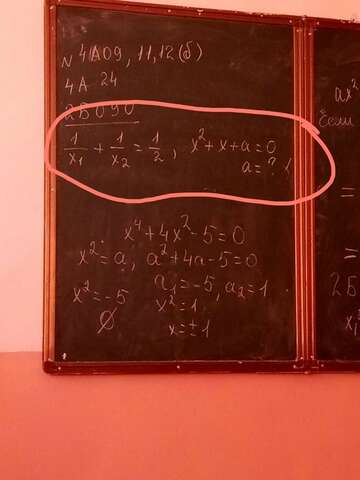 N 4A09, 11, 12 (б)
4A 24
2B090
1/x₁ + 1/x₂ = 1/2, x² + x + a = 0
a = ?
x⁴ + 4x² - 5 = 0
x² = a; a² + 4a - 5 = 0
a₁ = -5, a₂ = 1
x² = -5 x² = 1
∅ x = ± 1
ax²
Если
=
=
2Б
x₁²